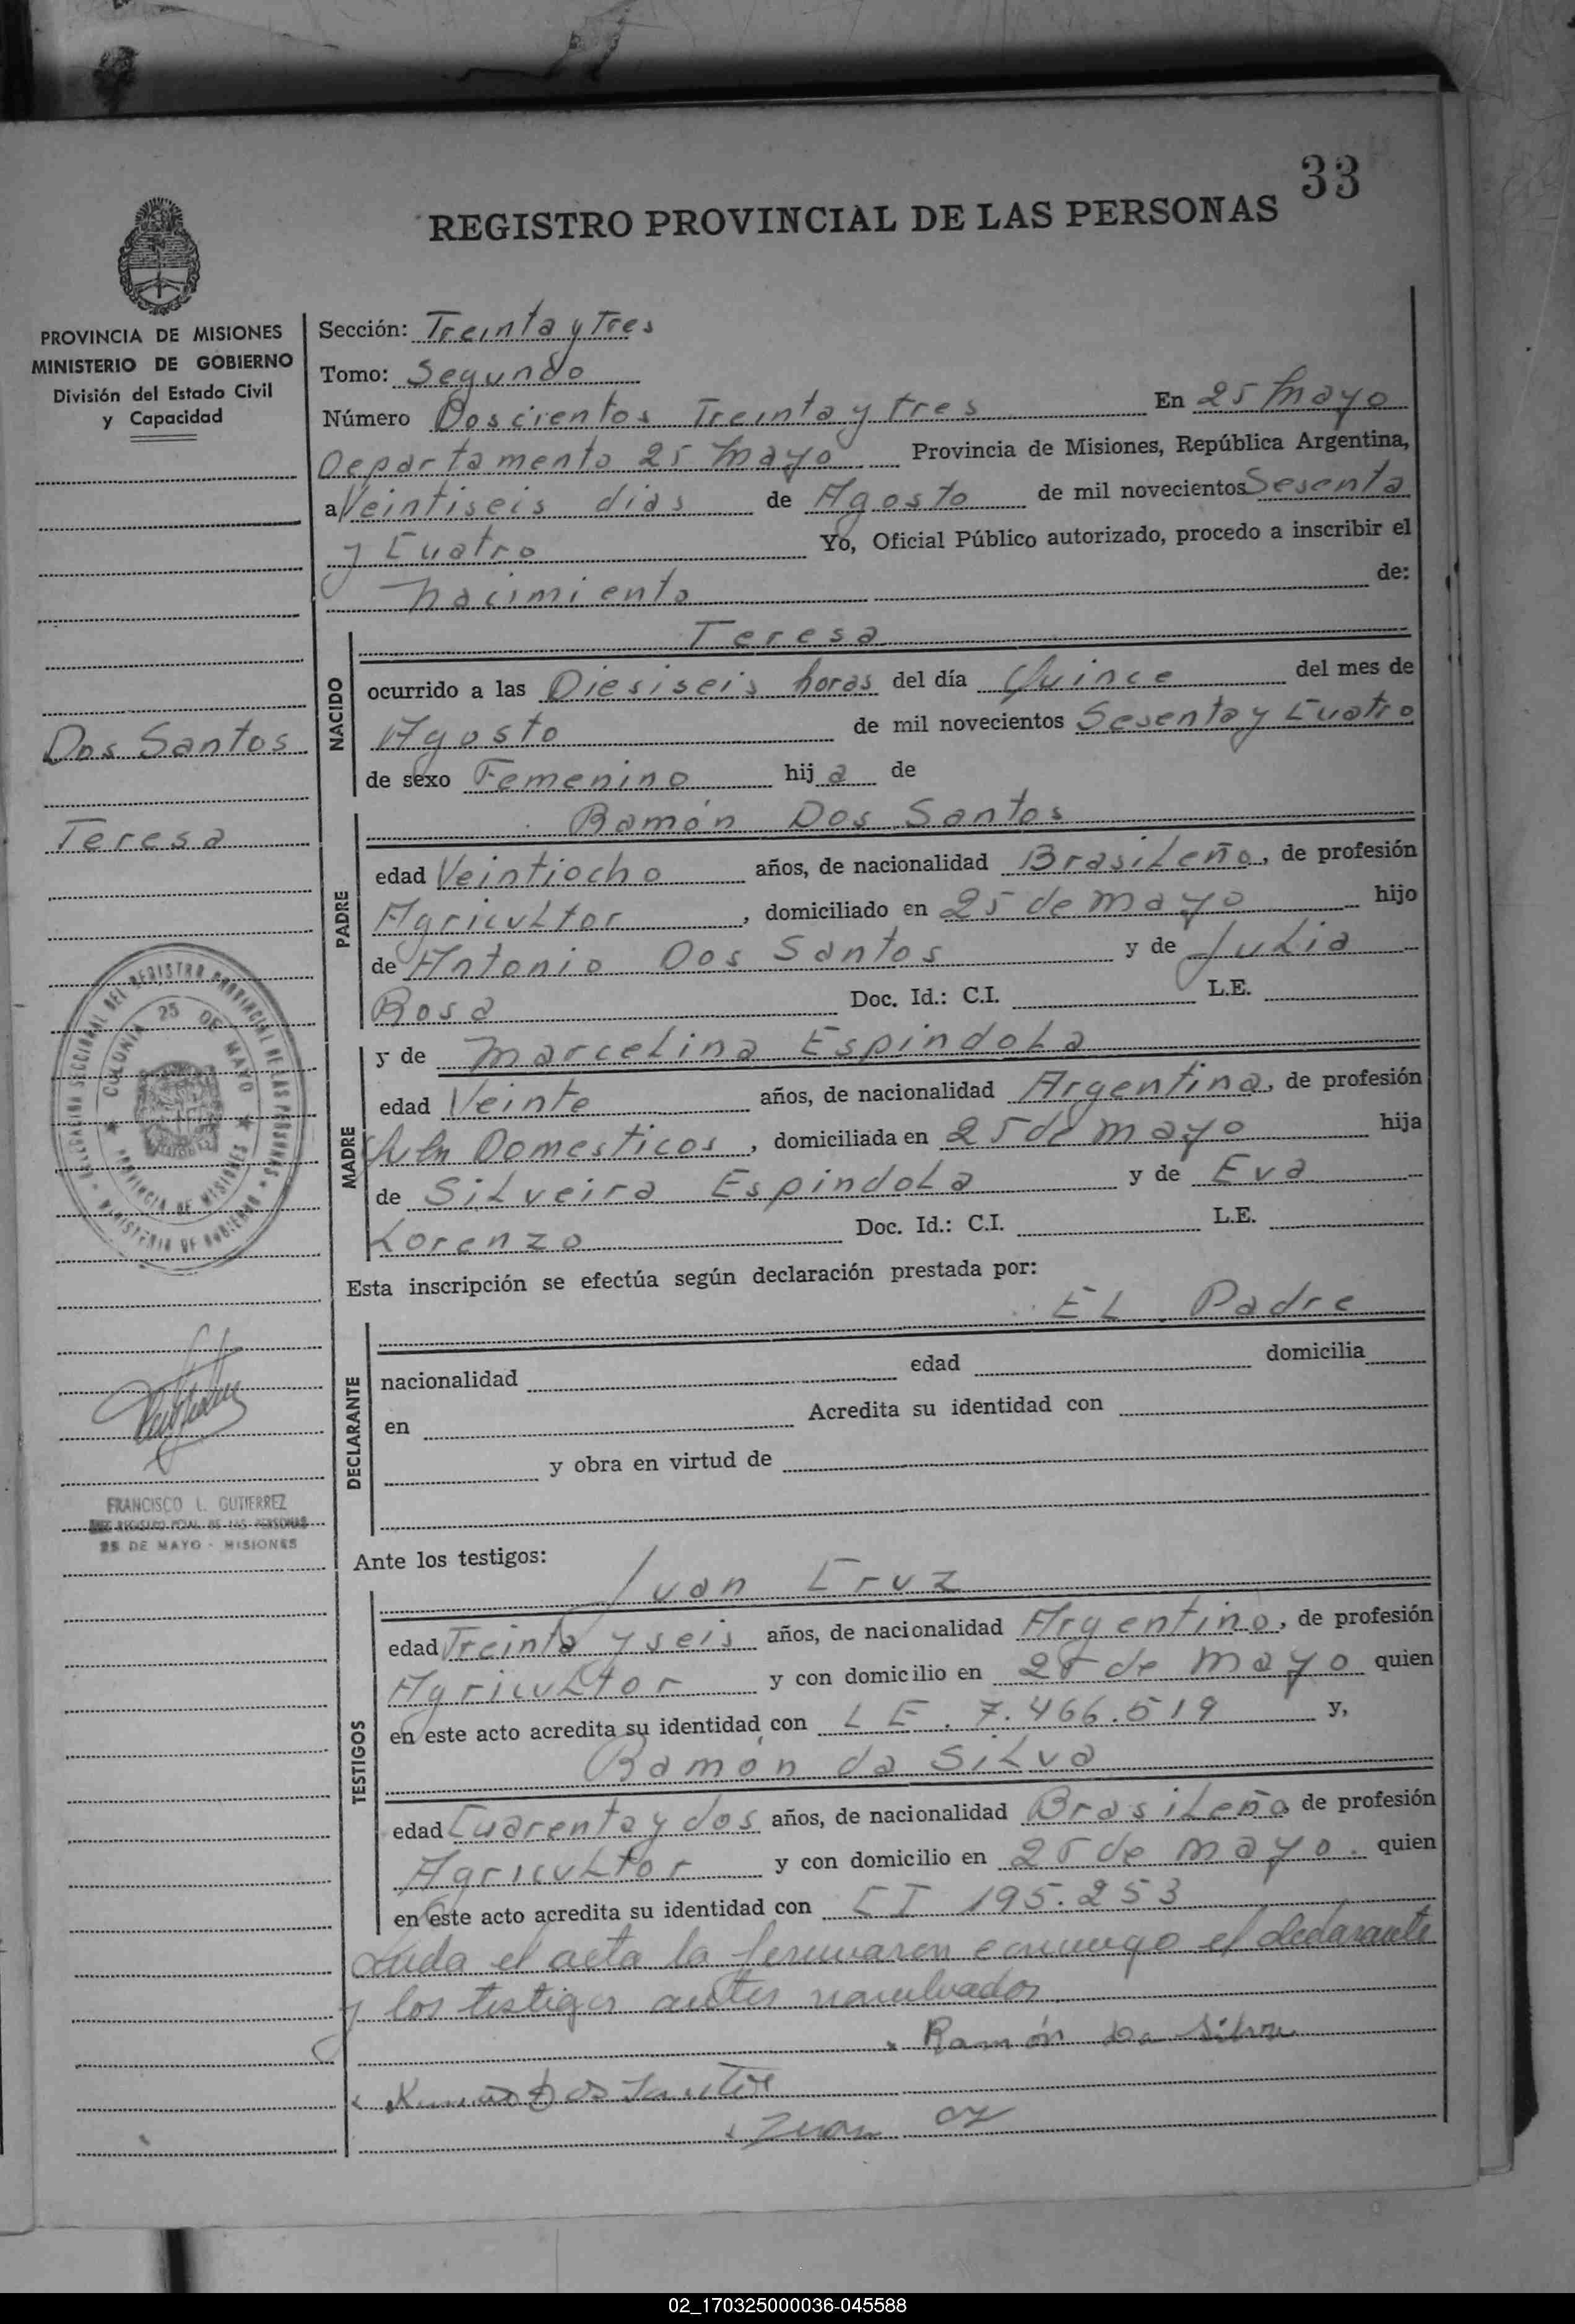 33
REGISTRO PROVINCIAL DE LAS PERSONAS
PROVINCIA DE MISIONES
MINISTERIO DE GOBIERNO
División del Estado Civil
y Capacidad
Dos Santos
Teresa
DELEGACION SECCIONAL DEL REGISTRO PROVINCIAL DE LAS PERSONAS
COLONIA 25 DE MAYO
PROVINCIA DE MISIONES
MINISTERIO DE GOBIERNO
FRANCISCO L. GUTIERREZ
REGISTRO PCIAL. DE LAS PERSONAS
25 DE MAYO - MISIONES
Sección: Treinta y Tres
Tomo: Segundo
Número Doscientos Treinta y tres En 25 Mayo
Departamento 25 Mayo Provincia de Misiones, República Argentina,
a Veintiseis dias de Agosto de mil novecientos Sesenta
y Cuatro Yo, Oficial Público autorizado, procedo a inscribir el
nacimiento de:
NACIDO
Teresa
ocurrido a las Diesiseis horas del día Quince del mes de
Agosto de mil novecientos Sesenta y Cuatro
de sexo Femenino hija de
PADRE
Ramón Dos Santos
edad Veintiocho años, de nacionalidad Brasileño, de profesión
Agricultor, domiciliado en 25 de mayo hijo
de Antonio Dos Santos y de Julia
Rosa Doc. Id.: C.I. L.E.
MADRE
y de Marcelina Espindola
edad Veinte años, de nacionalidad Argentina, de profesión
Domesticos, domiciliada en 25 de mayo hija
de Silveira Espindola y de Eva
Lorenzo Doc. Id.: C.I. L.E.
Esta inscripción se efectúa según declaración prestada por:
DECLARANTE
El Padre
nacionalidad edad domicilia
en Acredita su identidad con
y obra en virtud de
Ante los testigos:
TESTIGOS
Juan Cruz
edad Treinta y seis años, de nacionalidad Argentino, de profesión
Agricultor y con domicilio en 25 de mayo quien
en este acto acredita su identidad con L E. 7.466.519 y,
Ramón da Silva
edad Cuarenta y dos años, de nacionalidad Brasileño, de profesión
Agricultor y con domicilio en 25 de mayo. quien
en este acto acredita su identidad con CI 195.253
Leida el acta la firmaron conmigo el declarante
y los testigos antes nombrados
Ramón Da Silva
Dos Santos
Juan
02_170325000036-045588